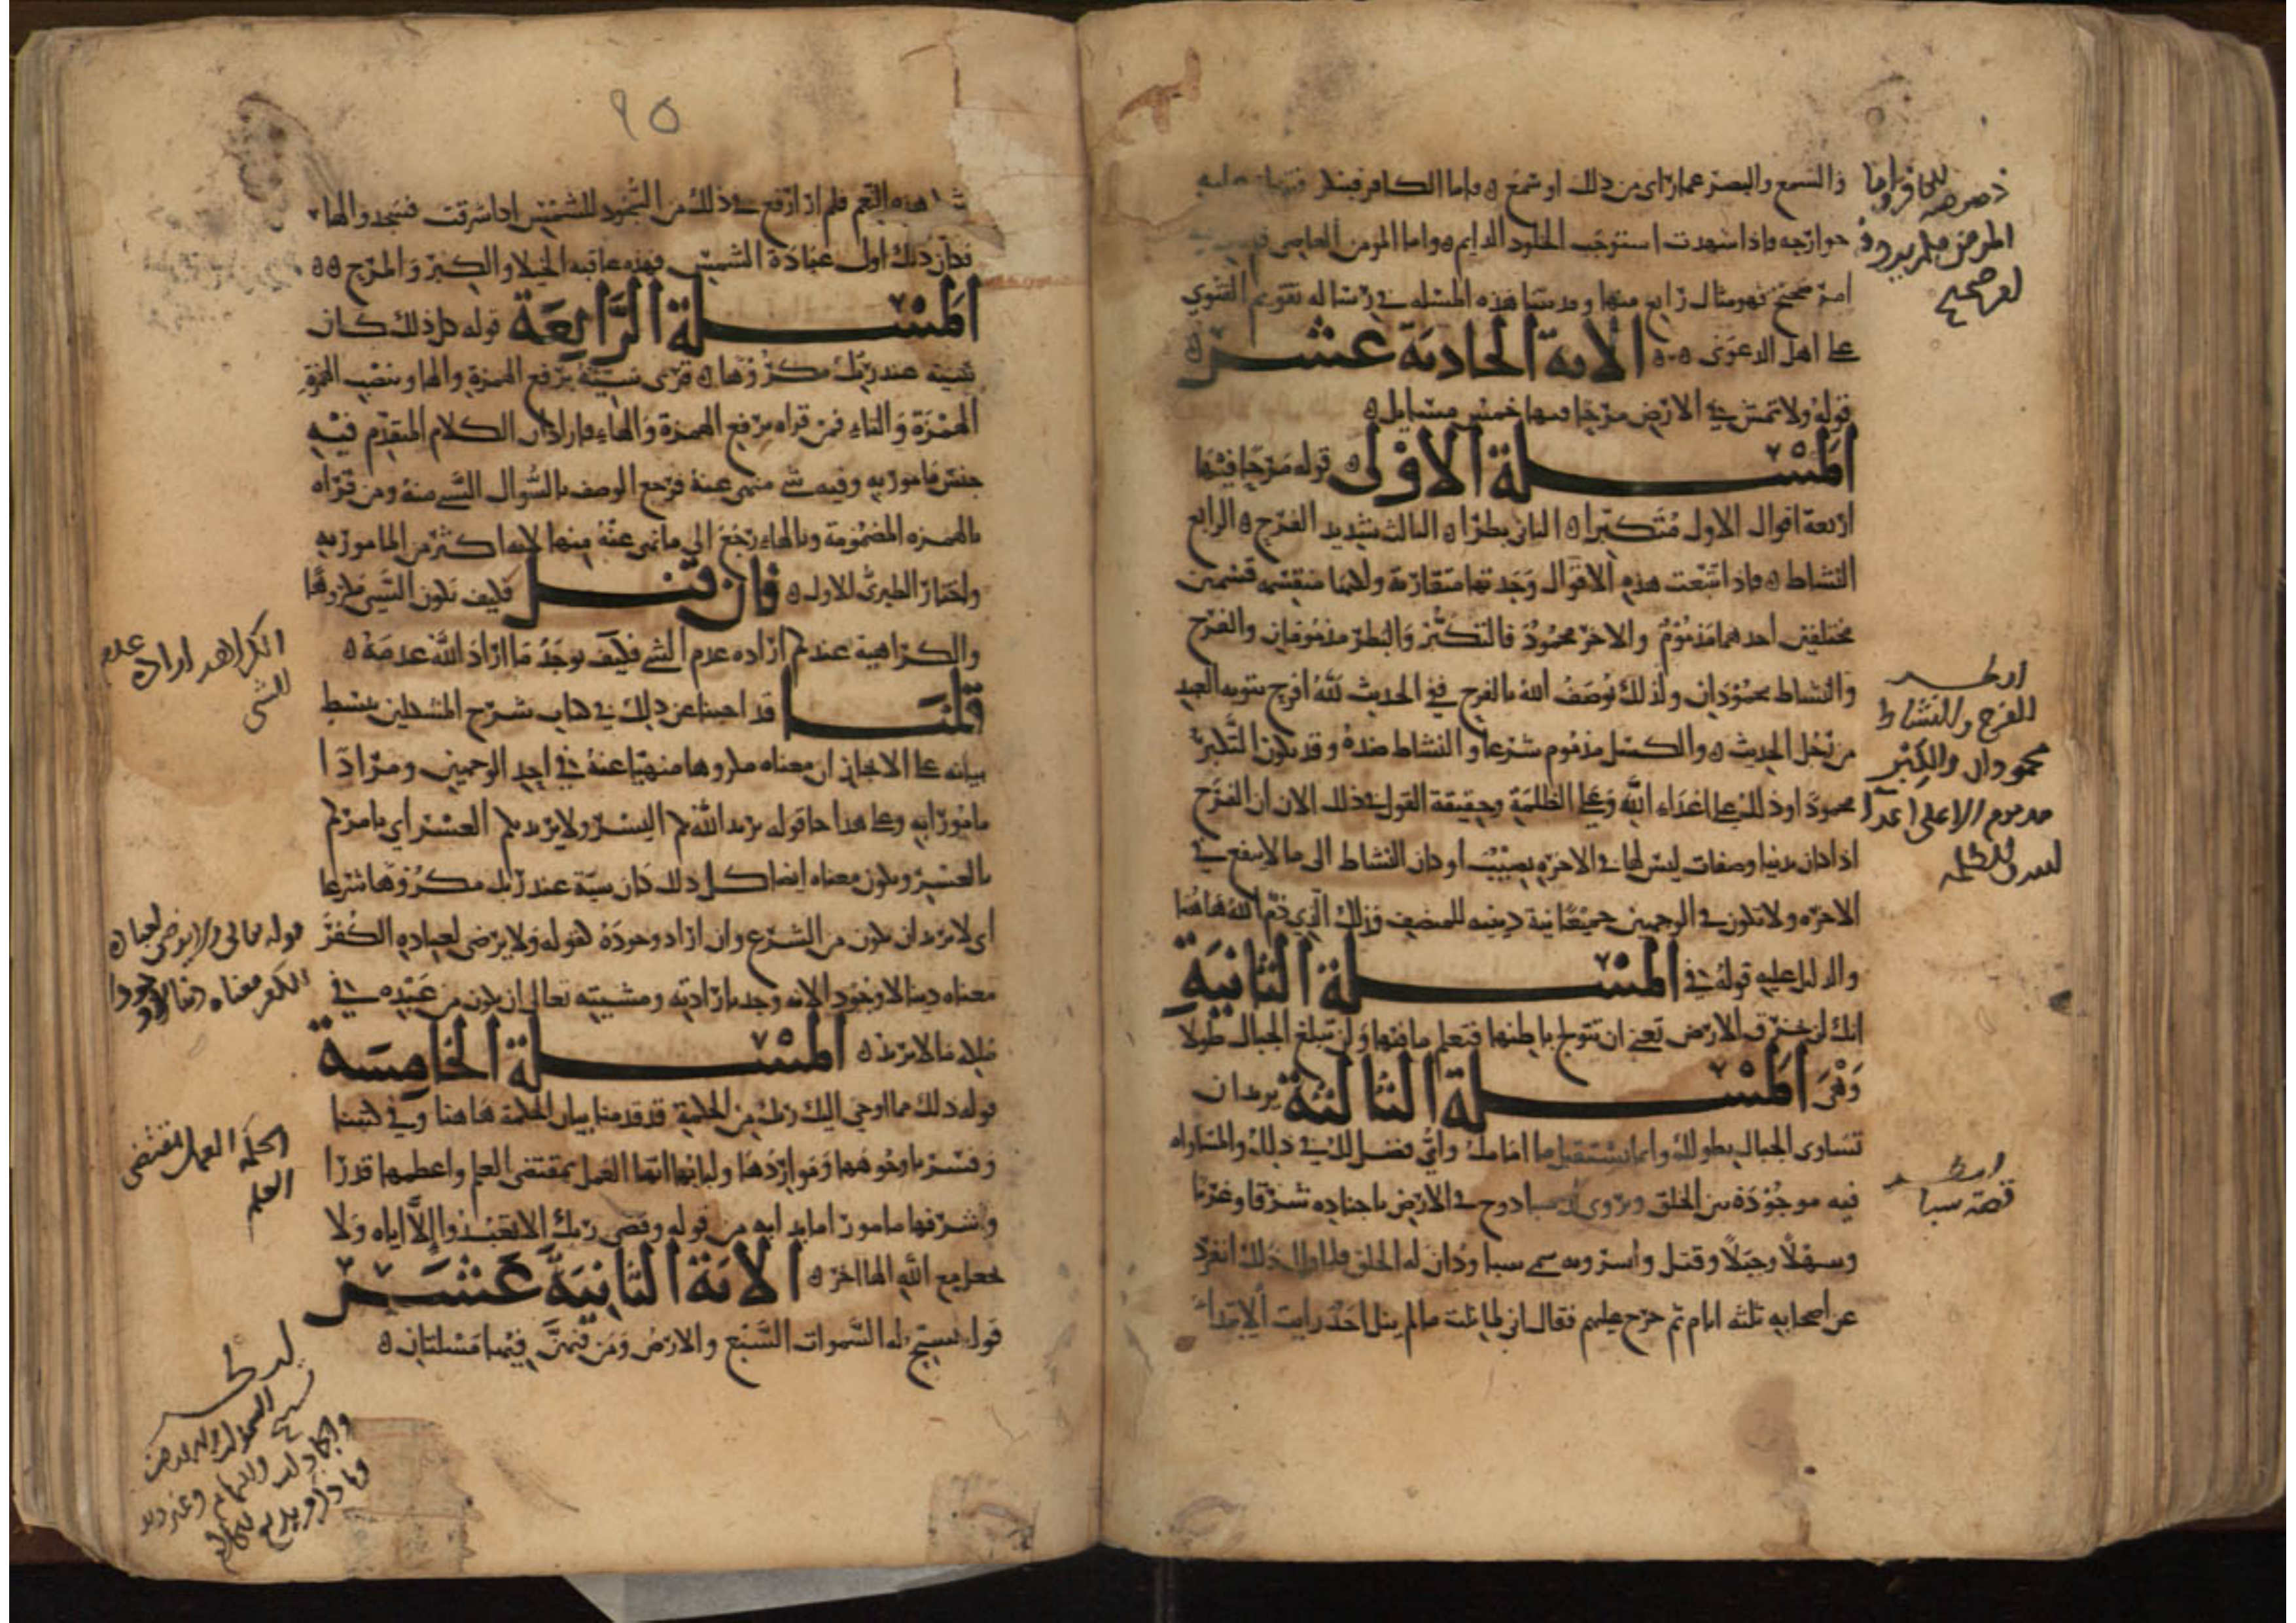 والسمع والبصر عما راى من ذلك او سمع واما الكافر فينكر فتشهد عليه
جوارحه فاذا شهدت استوجب الخلود الدايم واما المومن العاصي
امر صحيح فهو مثال رابع منها وقد بينا هذه المسله في رسالة تقويم الفتوي
على اهل الدعوى الاية الحادية عشر
قوله ولا تمش في الارض مرحا فيها خمس مسايل
المسلة الاولى قوله مرحا فيها
اربعة اقوال الاول متكبرا الثاني بطرا الثالث شديد الفرح الرابع
النشاط فاذا تتبعت هذه الاقوال وجدتها متقاربة ولكنها منقسمه قسمين
مختلفين احدهما مذموم والاخر محمود فالتكبر والبطر مذمومان والفرح
والنشاط محمودان ولذلك يوصف الله بالفرح في الحديث لله افرح بتوبه العبد
من رجل الحديث والكسل مذموم شرعا والنشاط ضده وقد يكون التكبر
محمودا وذلك على اعداء الله وعلى الظلمة وحقيقة القول في ذلك الان ان الفرح
اذا كان بدنيا وصفات ليس لها في الاخره نصيب او كان النشاط الى ما لا ينفع في
الاخره ولا تكون في الوجهين جميعا نية دينيه للمتصف وذلك الذي ذم الله هاهنا
والدليل عليه قوله في المسلة الثانية
انك لن تخرق الارض تعني ان تتولج باطنها فتعلم ما فيها ولن تبلغ الجبال طولا
وهى المسلة الثالثة يريد ان
تساوى الجبال بطولك وانما تستقبل ما امامك واي فضل لك في ذلك والمساواه
فيه موجودة بين الخلق ويروى ان سبا دوح في الارض باجناده شرقا وغربا
وسهلا وجبلا وقتل واسر وبه سمي سبا ودان له الخلق فلما راى ذلك انفرد
عن اصحابه ثلثه ايام ثم خرج عليهم فقال اني لما نلت ما لم ينل احد رايت الابتداء
المومن
صحيح
انظر
الفرح والنشاط
محمودان والكبر
مذموم الا على اعدا
انظر
قصة سبا
٩٥
هذه النعم فلم ار ارفع في ذلك من السجود للشمس اذا شرقت فسجدوا لها
فكان ذلك اول عبادة الشمس فهذه عاقبه الخيلا والكبر والمرح
المسلة الرابعة قوله كل ذلك كان
سيئة عند ربك مكروها قرى سيئه برفع الهمزة والها وبنصب الهمزة
الهمزة والتاء فمن قراه برفع الهمزة والهاء فاراد ان الكلام المتقدم فيه
حسن مامور به وفيه سي منهى عنه فرجع الوصف بالسوال السي منه ومن قراه
بالهمزه المضمومة وبالهاء رجع الى ما نهى عنه منها لانه اكثر من المامور به
واختار الطبرى الاول فان قيل فكيف يكون الشي مكروها
والكراهية عندكم اراده عدم الشي فكيف يوجد ما اراد الله عدمه
قلنا قد اجبنا عن ذلك في كتاب شرح المشكلين ببسط
بيانه على الايجاز ان معناه مكروها منهيا عنه في احد الوجهين ومرادا
مامورا به وعلى هذا جا قوله يريد الله بكم اليسر ولا يريد بكم العسر اي يامركم
باليسر ويكون معناه ايضا كل ذلك كان سية عند ربك مكروها شرعا
اي لا يريد ان يكون من الشرع وان اراد وجوده لقوله ولا يرضى لعباده الكفر
معناه دينا لا وجودا لانه وجد بارادته ومشيته تعالى ان يكون من عبيده في
ملكه ما لا يريد المسلة الخامسة
قوله ذلك مما اوحى اليك ربك من الحكمة قد قدمنا بيان الحكمة هاهنا وفي كتبنا
وفسرنا وجوهها ومواردها ولبابها انها العمل بمقتضى العلم واعظمها قدرا
واشرفها مامورا ما بدا به من قوله وقضى ربك الا تعبدوا الا اياه ولا
تجعل مع الله الها اخر الاية الثانية عشر
قوله تسبح له السموات السبع والارض ومن فيهن فيها مسلتان
الكراهه ارادة عدم
الشي
قوله تعالى ولا يرضى لعباده
الكفر معناه دينا لا وجودا
الحكمة العمل بمقتضى
العلم